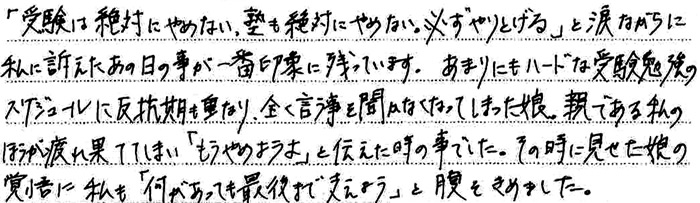 「受験は絶対にやめない、塾も絶対にやめない。必ずやりとげる」と涙ながらに
私に訴えたあの日の事が一番印象に残っています。あまりにもハードな受験勉強の
スケジュールに反抗期も重なり、全く言う事を聞かなくなってしまった娘。親である私の
ほうが疲れ果ててしまい「もうやめようよ」と伝えた時の事でした。その時に見せた娘の
覚悟に私も「何があっても最後まで支えよう」と腹をきめました。